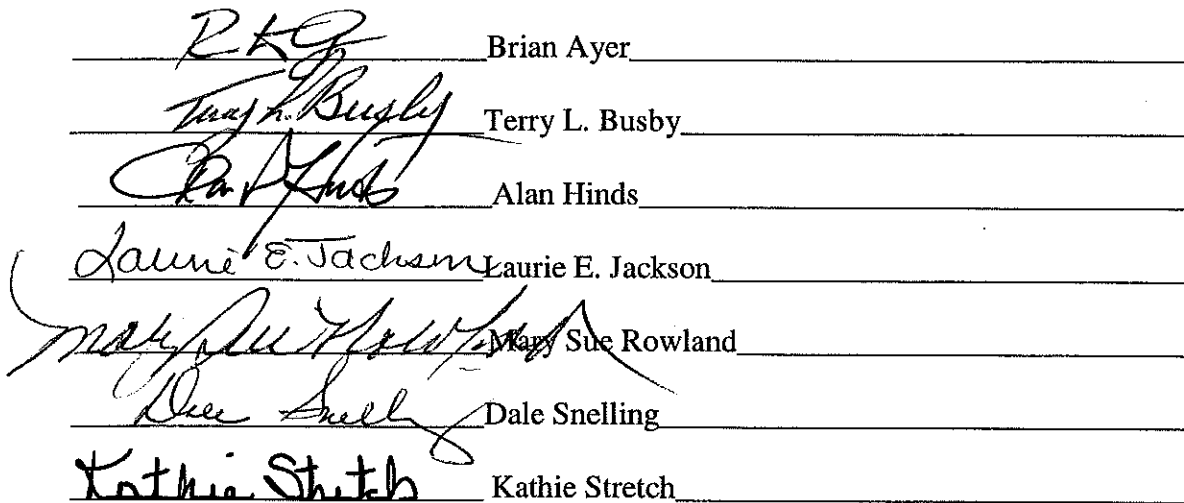 Brian Ayer
Terry L. Busby Terry L. Busby
Alan Hinds
Laurie E. Jackson Laurie E. Jackson
Mary Sue Rowland Mary Sue Rowland
Dale Snelling Dale Snelling
Kathie Stretch Kathie Stretch